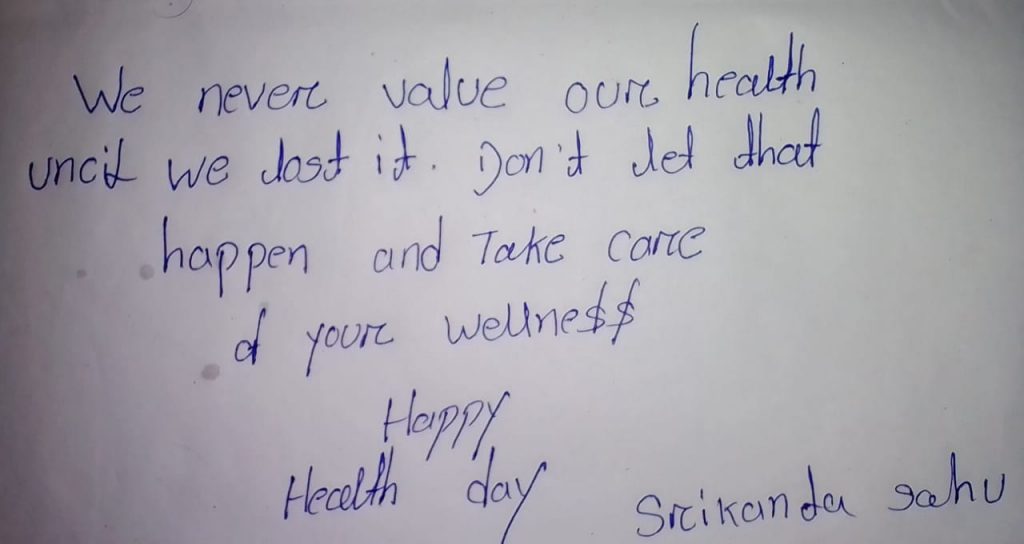 We never value our health
uncil we lost it. Don't let that
happen and Take care
of your wellne$$
Happy
Health day
Srikanda sahu